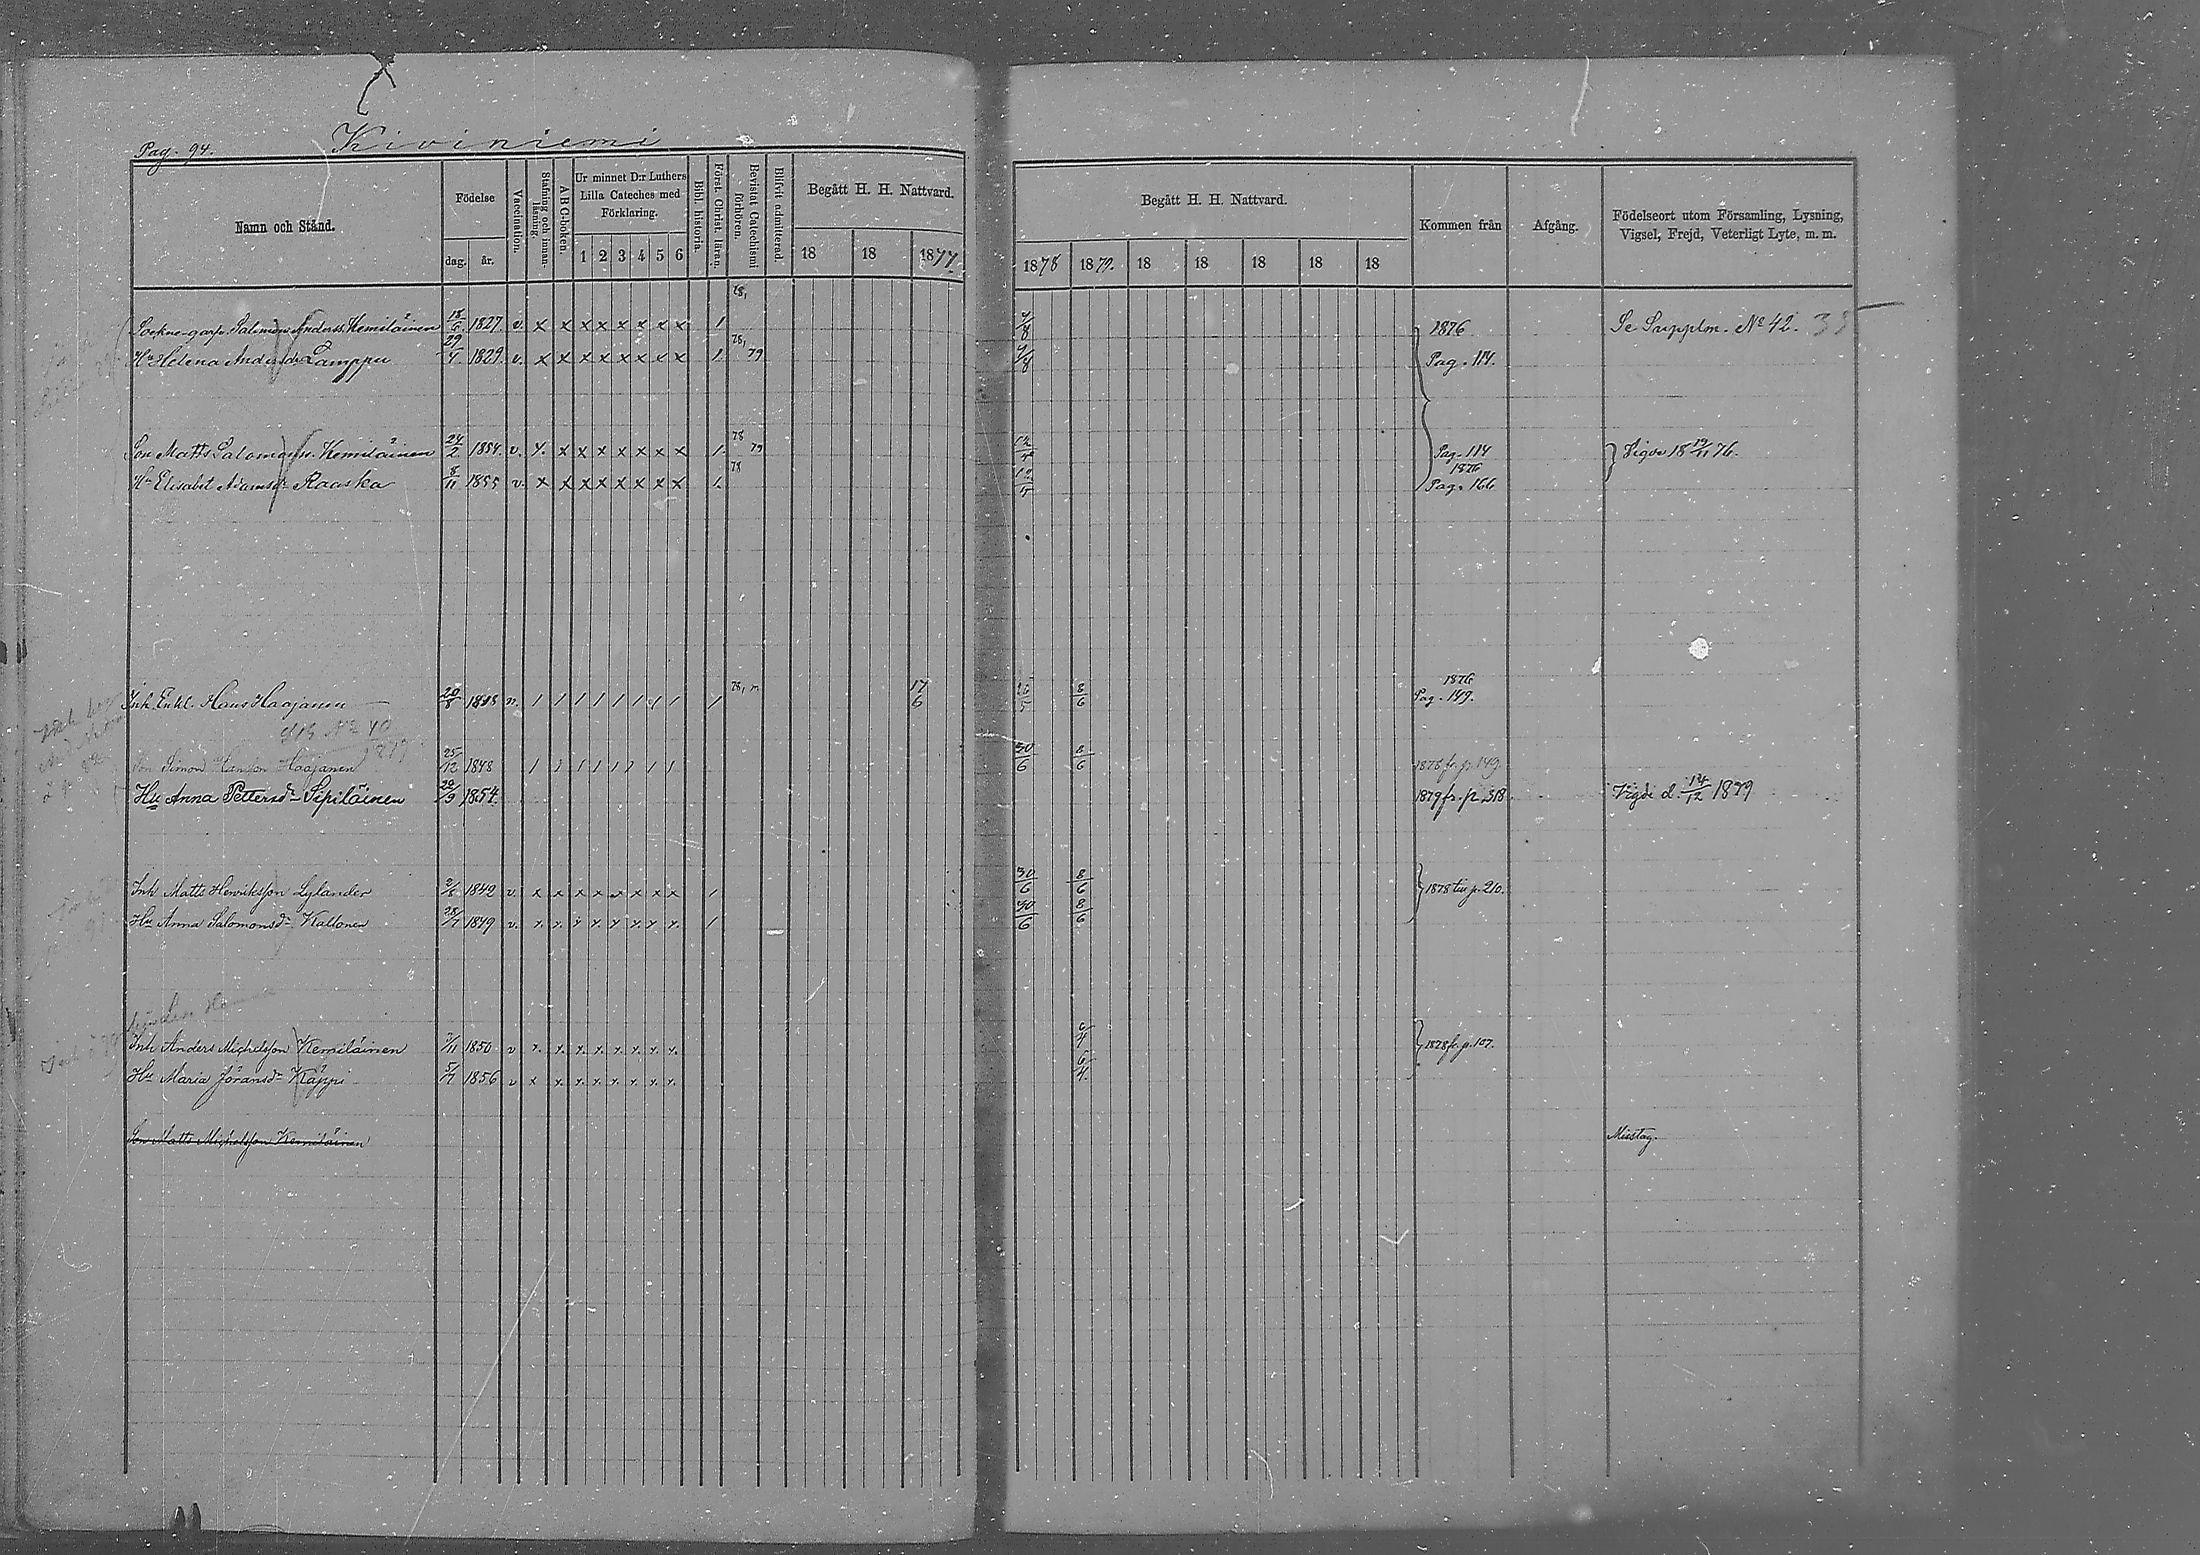 Kiviniemi
Pag. 94.
Namn och Stånd.
Födelse
dag. år.
Vaccination.
Stafning och innanläsning.
ABC-boken.
Ur minnet D:r Luthers Lilla Cateches med Förklaring.
1 2 3 4 5 6
Bibl. historia.
Först. Christ. läran.
Bevistat Catechismi förhören.
Blifvit admitterad.
Begått H. H. Nattvard.
18 18 1877.
Begått H. H. Nattvard.
1878 1879. 18 18 18 18 18
Kommen från
Afgång.
Födelseort utom Församling, Lysning, Vigsel, Frejd, Veterligt Lyte, m. m.
Salomon Anderss. Kemiläinen 18/6 1827. v. x x x x x x x x 1 78, 4/8 1876 Se Supplm. No 42.
Hu Helena Andersdr Lamppu 29/4 1829. v. x x x x x x x x 1. 78, 79 4/8 Pag. 114.
Son Matts Salomonss. Kemiläinen 24/2 1854. v. x x x x x x x 1. 78 79 Pag. 114 Vigde 18 19/11 76.
Hu Elisabet Adamsdr Raaska 8/11 1855 v. x x x x x x x x 1. 78 1876 Pag. 166
Inh. Enkl. Hans Haajanen 20/8 1 1 1 1 1 1 1 1 1 78, 17/6 8/6 1876 Pag. 149.
No 40
1879
Son Simon Hansson Haajanen 25/12 1848 1 1 1 1 1 1 1 1 30/6 8/6 1878 fr. p. 149.
Hu Anna Pettersdr Sipiläinen 20/9 1854. 1879 fr. p. 318 Vigde d. 14/12 1879
Inh Matts Henriksson Lylander 2/8 1849 v. x x x x x x x x 1 30/6 8/6 1878 fr. p. 210.
Hu Anna Salomonsdr Kaltonen 28/7 1849 v. x x x x x x x x 1 30/6 8/6
Inh Anders Michelsson Kemiläinen 1850 v x. x. x. x. x. x. x. x. 6/4 1878 fr. p. 107.
Hu Maria Jöransdr Käppi 5/7 1856 v x x x x x x x x 6/4.
Son Matts Michelsson Kemiläinen Misstag.